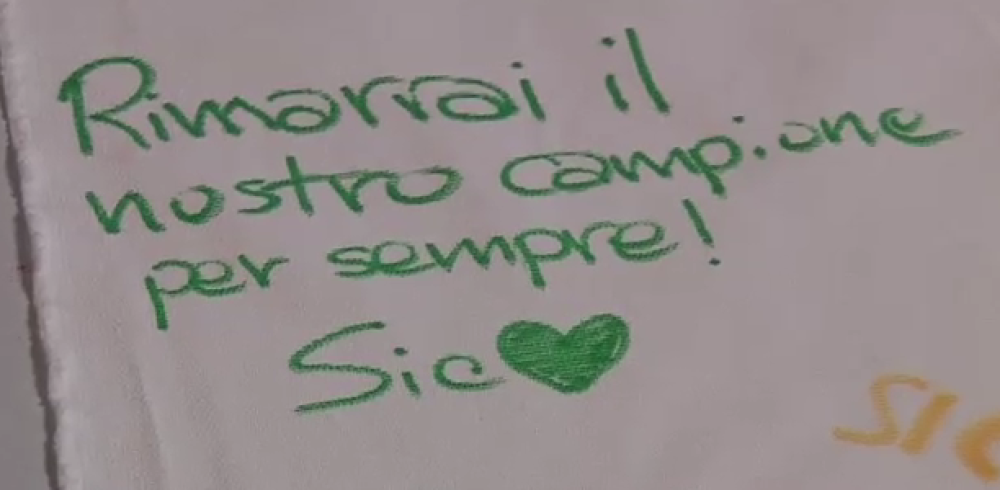 Rimarrai il
nostro campione
per sempre!
Sic
SIC